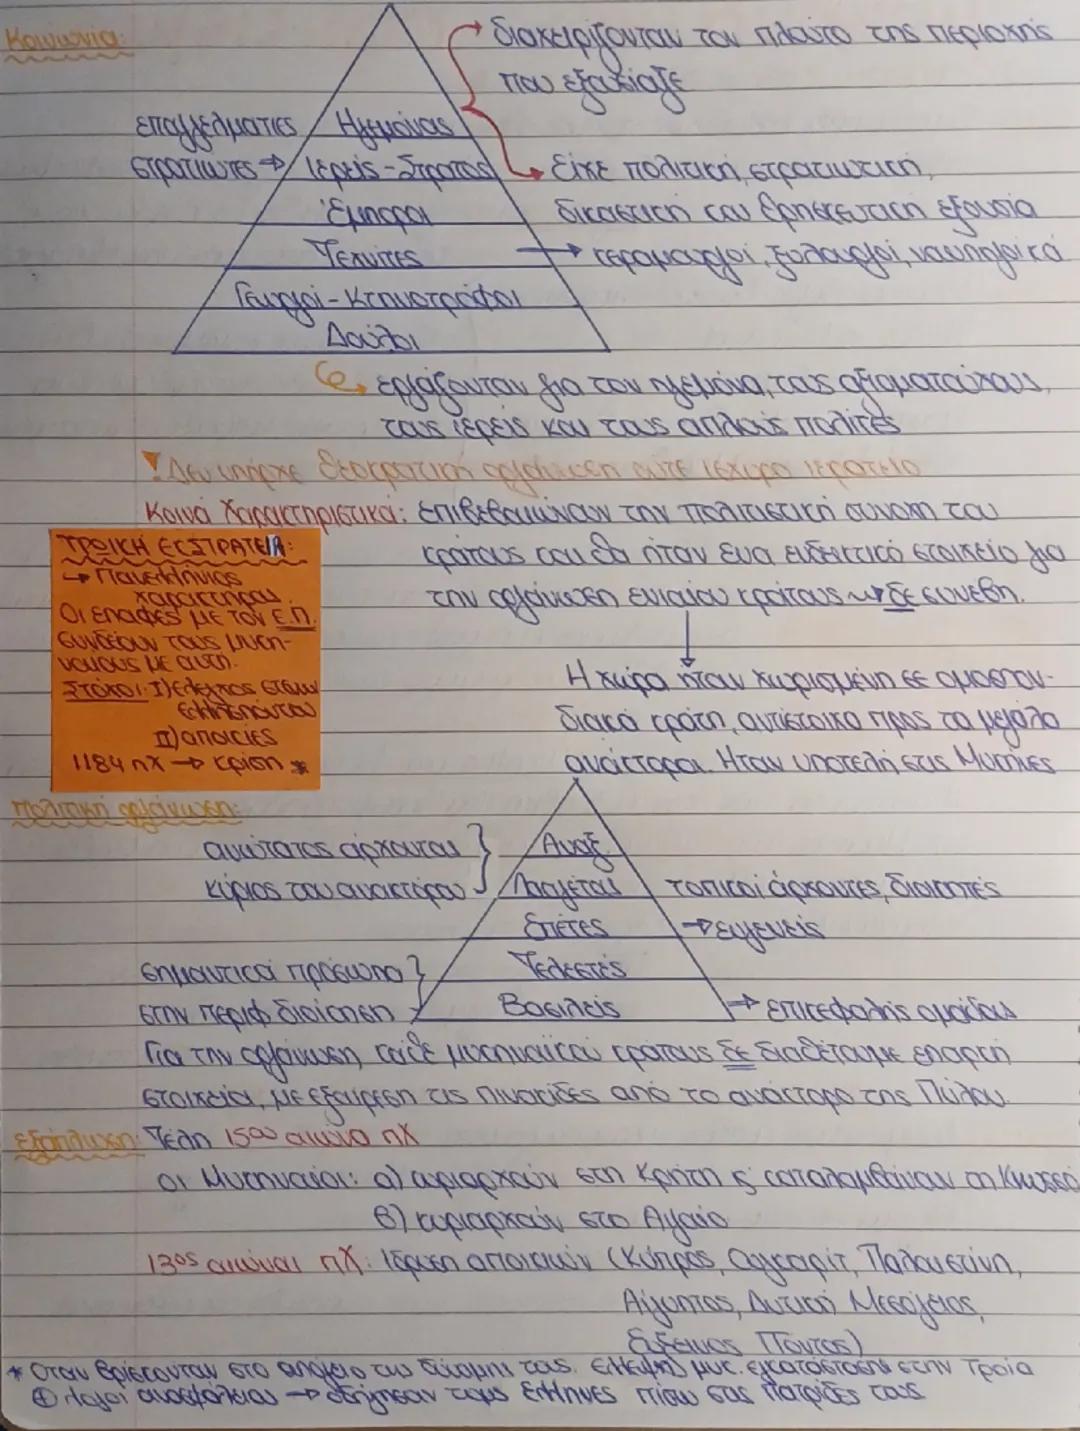 Κοινωνία:
διαχειρίζονταν τον πλούτο της περιοχής
που εξουσίαζε
επαγγελματίες
στρατιώτες ⇒
Ηγεμόνας
Ιερείς - Στρατός
Έμποροι
Τεχνίτες
Γεωργοί - Κτηνοτρόφοι
Δούλοι
Είχε πολιτική, στρατιωτική,
δικαστική και θρησκευτική εξουσία
→ κεραμουργοί, ξυλουργοί, ναυπηγοί κά
εργάζονταν για τον ηγεμόνα, τους αξιωματούχους,
τους ιερείς και τους απλούς πολίτες
Δεν υπήρχε θεοκρατική οργάνωση ούτε ισχυρό ιερατείο
Κοινά Χαρακτηριστικά: επιβεβαιώνουν την πολιτιστική συνοχή του
κράτους και θα ήταν ένα ενδεικτικό στοιχείο για
την οργάνωση ενιαίου κράτους → δε συνέβη.
ΤΡΩΙΚΗ ΕΚΣΤΡΑΤΕΙΑ:
→ Πανελλήνιος
χαρακτήρας
Οι επαφές με τον Ε.Π.
συνδέουν τους μυκη-
ναίους με αυτή.
Στόχοι: Ι) έλεγχος στενών
Ελλησπόντου
ΙΙ) αποικίες
1184 πΧ → κρίση *
Η χώρα ήταν χωρισμένη σε ομοσπον-
διακά κράτη, αντίστοιχα προς τα μεγάλα
ανάκτορα. Ήταν υποτελή στις Μυκήνες
Πολιτική οργάνωση:
ανώτατος άρχοντας
κύριος του ανακτόρου
Άναξ
Λααγέτας
Επέτες
Τελεστές
Βασιλείς
τοπικοί άρχοντες, διοικητές
→ ευγενείς
σημαντικά πρόσωπα
στην περιφ. διοίκηση
→ επικεφαλής ομάδας
Για την οργάνωση κάθε μυκηναϊκού κράτους δε διαθέτουμε επαρκή
στοιχεία, με εξαίρεση τις πινακίδες από το ανάκτορο της Πύλου.
Εξάπλωση: Τέλη 15ου αιώνα πΧ
οι Μυκηναίοι: α) κυριαρχούν στη Κρήτη ς' καταλαμβάνουν τη Κνωσσό
β) κυριαρχούν στο Αιγαίο
13ος αιώνας πΧ: Ίδρυση αποικιών (Κύπρος, Ουγκαρίτ, Παλαιστίνη,
Αίγυπτος, Δυτική Μεσόγειος,
Εύξεινος Πόντος)
* Όταν βρίσκονταν στο απόγειο της δύναμή τους. Έλλειψη μυκ. εγκατάστασης στην Τροία
⊕ λόγοι ανασφάλειας → οδήγησαν τους Έλληνες πίσω στις πατρίδες τους